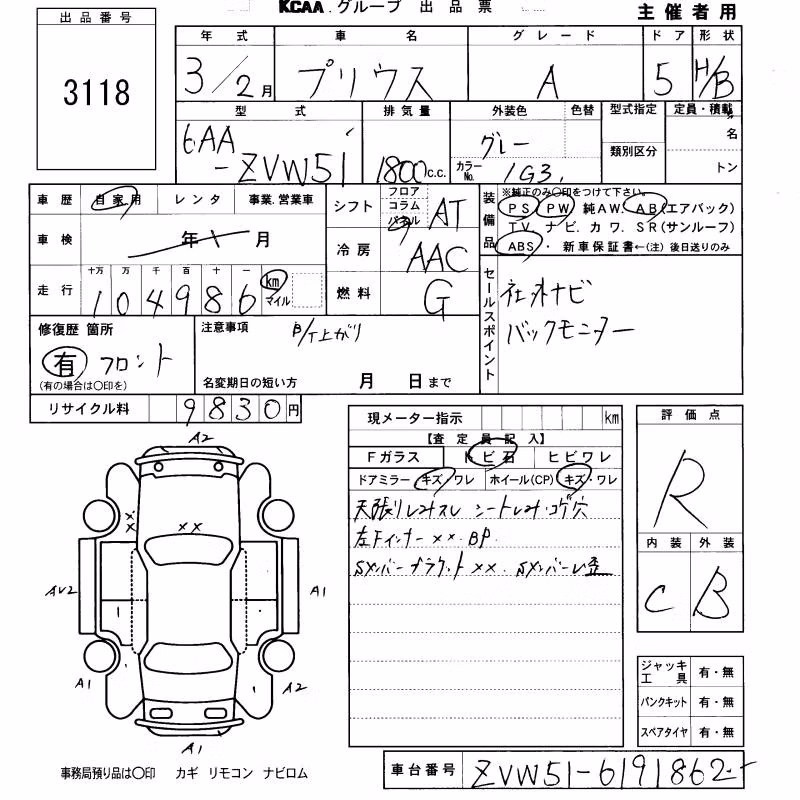 出品番号
3118
KCAA グループ 出品票
主催者用
年式 車名 グレード ドア 形状
3/2月 プリウス A 5 H/B
型式 排気量 外装色 色替 型式指定 定員・積載
6AA-ZVW51 1800c.c. グレー 類別区分 名
カラーNo. 1G3 トン
車歴 自家用 レンタ 事業.営業車
車検 年 月
走行 十万 万 千 百 十 一
104986 km マイル
シフト フロア コラム パネル AT
冷房 AAC
燃料 G
装備品 ※純正のみ○印をつけて下さい。
PS PW 純AW. AB(エアバック)
TV. ナビ. カワ. SR(サンルーフ)
ABS・ 新車保証書←(注) 後日送りのみ
セールスポイント
社外ナビ
バックモニター
修復歴 箇所
有 フロント
(有の場合は○印を)
注意事項
上がり
名変期日の短い方 月 日まで
リサイクル料 9830円
現メーター指示 km
【査定員記入】
Fガラス トビ石 ヒビワレ
ドアミラー キズ/ワレ ホイール(CP) キズ・ワレ
天張りしみスレ シートしみ・コゲ穴
左Fインナー ×× BP
Sメンバーブラケット ××. Sメンバー 歪
評価点
R
内装 外装
C B
A2
×
×
××
AU2
A1
A1
A2
A1
ジャッキ工具 有・無
パンクキット 有・無
スペアタイヤ 有・無
事務局預り品は○印 カギ リモコン ナビロム
車台番号 ZVW51-6191862